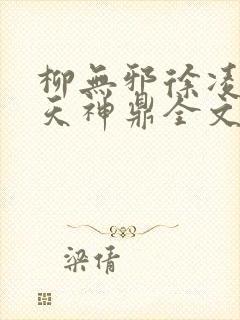 柳無邪徐凌
天神鼎全文
梁倩